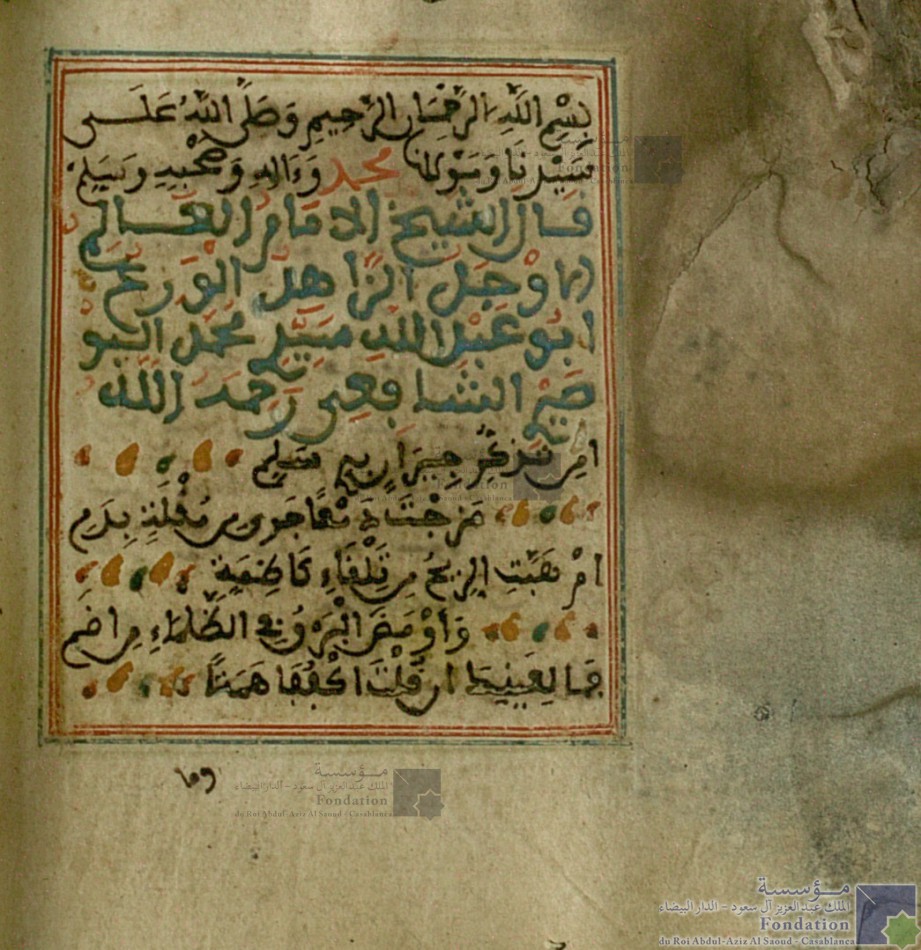 بِسْمِ اللَّهِ الرَّحْمَٰنِ الرَّحِيمِ وَصَلَّى اللَّهُ عَلَى
سَيِّدِنَا وَمَوْلَانَا مُحَمَّدٍ وَءَالِهِ وَصَحْبِهِ وَسَلِّمْ
قال الشيخ الامام العالم
الاوحد الزاهد الورع
ابو عبد الله سيدي محمد البو
صيري الشافعي رحمه الله
امن تذكر جيران بذي سلم
مزجت دمعا جرى من مقلة بدم
ام هبت الريح من تلقاء كاظمة
وأومض البرق في الظلماء من اضم
فما لعينيك ان قلت اكففا همتا
وما
مؤسسة
الملك عبد العزيز آل سعود - الدار البيضاء
Fondation
du Roi Abdul-Aziz Al Saoud - Casablanca
مؤسسة
الملك عبد العزيز آل سعود - الدار البيضاء
Fondation
du Roi Abdul-Aziz Al Saoud - Casablanca